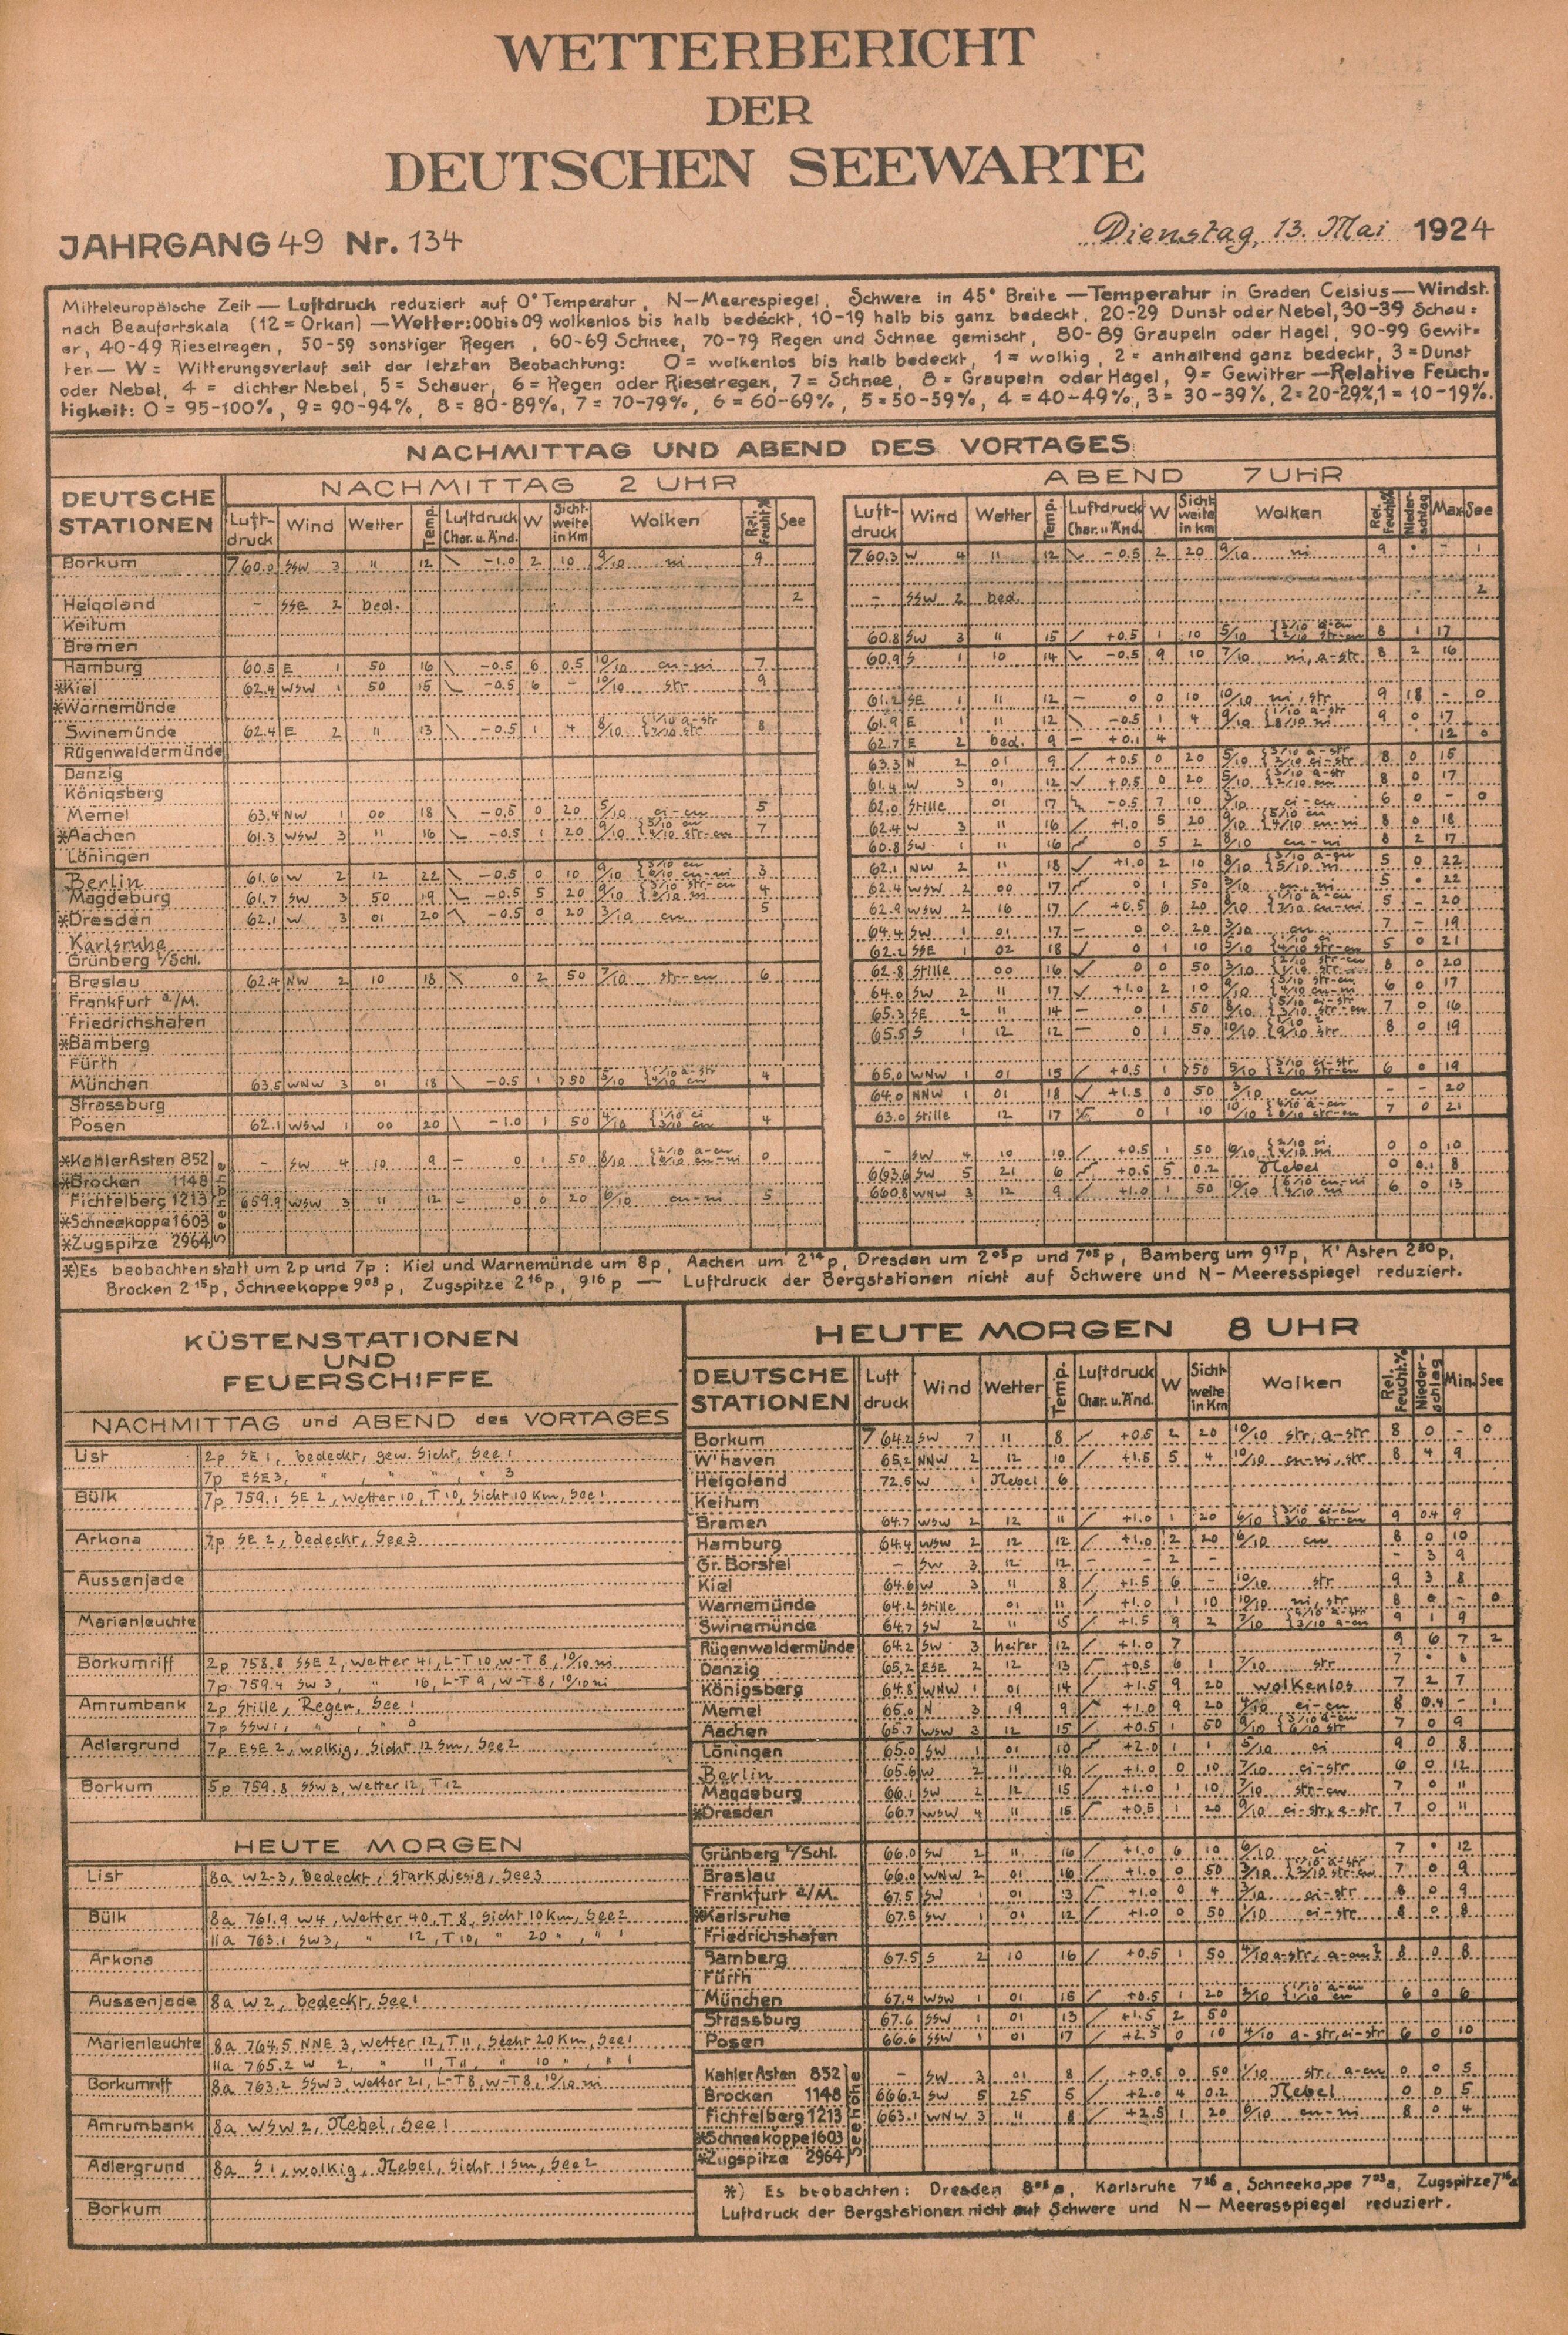 WETTERBERICHT
DER
DEUTSCHEN SEEWARTE
JAHRGANG 49 Nr. 134
Dienstag, 13. Mai 1924
Mitteleuropäische Zeit — Luftdruck reduziert auf 0° Temperatur, N—Meerespiegel, Schwere in 45° Breite — Temperatur in Graden Celsius — Windst.
nach Beaufortskala (12 = Orkan) — Wetter: 00 bis 09 wolkenlos bis halb bedeckt, 10-19 halb bis ganz bedeckt, 20-29 Dunst oder Nebel, 30-39 Schau=
er, 40-49 Rieselregen, 50-59 sonstiger Regen, 60-69 Schnee, 70-79 Regen und Schnee gemischt, 80-89 Graupeln oder Hagel, 90-99 Gewit=
ter — W = Witterungsverlauf seit der letzten Beobachtung: 0 = wolkenlos bis halb bedeckt, 1 = wolkig, 2 = anhaltend ganz bedeckt, 3 = Dunst
oder Nebel, 4 = dichter Nebel, 5 = Schauer, 6 = Regen oder Rieselregen, 7 = Schnee, 8 = Graupeln oder Hagel, 9 = Gewitter — Relative Feuch=
tigkeit: 0 = 95-100%, 9 = 90-94%, 8 = 80-89%, 7 = 70-79%, 6 = 60-69%, 5 = 50-59%, 4 = 40-49%, 3 = 30-39%, 2 = 20-29%, 1 = 10-19%.
NACHMITTAG UND ABEND DES VORTAGES
DEUTSCHE STATIONEN
NACHMITTAG 2 UHR
Luft-druck Wind Wetter Temp. Luftdruck Char. u. Änd. W Sicht-weite in Km Wolken Rel. Feucht.% See
Borkum 760.0 SSW 3 11 12 -1.0 2 10 9/10 ni 9
Helgoland - SSE 2 bed. 2
Keitum
Bremen
Hamburg 60.5 E 1 50 16 -0.5 6 0.5 10/10 cu-ni 7
*Kiel 62.4 WSW 1 50 15 -0.5 6 - 10/10 str 9
*Warnemünde
Swinemünde 62.4 E 2 11 13 -0.5 1 4 8/10 8
Rügenwaldermünde
Danzig
Königsberg
Memel 63.4 NW 1 00 18 -0.5 0 20 5/10 ci-cu 5
*Aachen 61.3 WSW 3 11 16 -0.5 1 20 9/10 7
Löningen
Berlin 61.6 W 2 12 22 -0.5 0 10 9/10 3
Magdeburg 61.7 SW 3 50 19 -0.5 5 20 9/10 4
*Dresden 62.1 W 3 01 20 -0.5 0 20 3/10 cu 5
Karlsruhe
Grünberg i/Schl.
Breslau 62.4 NW 2 10 18 0 2 50 7/10 str-cu 6
Frankfurt a/M.
Friedrichshafen
*Bamberg
Fürth
München 63.5 WNW 3 01 18 -0.5 1 >50 5/10 4
Strassburg
Posen 62.1 WSW 1 00 20 -1.0 1 50 4/10 4
*Kahler Asten 852 - SW 4 10 9 - 0 1 50 8/10 0
*Brocken 1148
Fichtelberg 1213 659.9 WSW 3 11 12 - 0 0 20 6/10 cu-ni 5
*Schneekoppe 1603
*Zugspitze 2964
Seehöhe
ABEND 7 UHR
Luft-druck Wind Wetter Temp. Luftdruck Char. u. Änd. W Sicht-weite in km Wolken Rel. Feucht.% Nieder-schlag Max See
760.3 W 4 11 12 -0.5 2 20 9/10 ni 9 • - 1
- SSW 2 bed. 2
60.8 SW 3 11 15 +0.5 1 10 5/10 8 1 17
60.9 S 1 10 14 -0.5 9 10 7/10 ni, a-str 8 2 16
61.2 SE 1 11 12 - 0 0 10 10/10 ni, str 9 18 - 0
61.9 E 1 11 12 -0.5 1 4 9/10 9 0 17
62.7 E 2 bed. 9 - +0.1 4 12 0
63.3 N 2 01 9 +0.5 0 20 5/10 8 0 15
61.4 W 3 01 12 +0.5 0 20 5/10 8 0 17
62.0 Stille 01 17 -0.5 7 10 ci-cu 6 0 - 0
62.4 W 3 11 16 +1.0 5 20 9/10 8 0 18
60.8 SW 1 11 16 0 5 2 8/10 cu-ni 8 2 17
62.1 NW 2 11 18 +1.0 2 10 8/10 5 0 22
62.4 WSW 2 00 17 0 1 50 5 • 22
62.9 WSW 2 16 17 +0.5 6 20 5 - 20
64.4 SW 1 01 17 - 0 0 20 cu 7 - 19
62.2 SSE 1 02 18 0 1 10 5/10 5 0 21
62.8 Stille 00 16 0 0 50 3/10 8 0 20
64.0 SW 2 11 17 +1.0 2 10 9/10 6 0 17
65.3 SE 2 11 14 - 0 1 50 8/10 7 0 16
65.5 S 1 12 12 - 0 1 50 10/10 8 0 19
65.0 WNW 1 01 15 +0.5 1 >50 5/10 6 0 19
64.0 NNW 1 01 18 +1.5 0 50 3/10 cu - - 20
63.0 Stille 12 17 0 1 10 10/10 7 0 21
- SW 4 10 10 +0.5 1 50 6/10 0 0 10
663.6 SW 5 21 6 +0.5 5 0.2 Nebel 0 0.1 8
660.8 WNW 3 12 9 +1.0 1 50 10/10 6 0 13
*) Es beobachten statt um 2p und 7p: Kiel und Warnemünde um 8p, Aachen um 2 14 p, Dresden um 2 05 p und 7 05 p, Bamberg um 9 17 p, K' Asten 2 30 p,
Brocken 2 15 p, Schneekoppe 9 03 p, Zugspitze 2 16 p, 9 16 p — Luftdruck der Bergstationen nicht auf Schwere und N—Meeresspiegel reduziert.
KÜSTENSTATIONEN
UND
FEUERSCHIFFE
NACHMITTAG und ABEND des VORTAGES
List 2p SE 1, bedeckt, gew. Sicht, See 1
7p ESE 3, " " " " 3
Bülk 7p 759.1 SE 2, Wetter 10, T 10, Sicht 10 Km, See 1
Arkona 7p SE 2, bedeckt, See 3
Aussenjade
Marienleuchte
Borkumriff 2p 758.8 SSE 2, Wetter 41, L-T 10, W-T 8, 10/10 ni
7p 759.4 SW 3, " 16, L-T 9, W-T 8, 10/10 ni
Amrumbank 2p Stille, Regen, See 1
7p SSW 1, " , " 0
Adlergrund 7p ESE 2, wolkig, Sicht 12 sm, See 2
Borkum 5p 759.8 SSW 3, Wetter 12, T 12
HEUTE MORGEN
List 8a W 2-3, bedeckt, stark diesig, See 3
Bülk 8a 761.9 W 4, Wetter 40, T 8, Sicht 10 Km, See 2
11a 763.1 SW 3, " 12, T 10, " 20 ", " 1
Arkona
Aussenjade 8a W 2, bedeckt, See 1
Marienleuchte 8a 764.5 NNE 3, Wetter 12, T 11, Sicht 20 Km, See 1
11a 765.2 W 2, " 11, T 11, " 10 ", " 1
Borkumriff 8a 763.2 SSW 3, Wetter 21, L-T 8, W-T 8, 10/10 ni
Amrumbank 8a WSW 2, Nebel, See 1
Adlergrund 8a S 1, wolkig, Nebel, Sicht 1 sm, See 2
Borkum
HEUTE MORGEN 8 UHR
DEUTSCHE STATIONEN Luft druck Wind Wetter Temp. Luftdruck Char. u. Änd. W Sicht-weite in Km Wolken Rel. Feucht.% Nieder-schlag Min. See
Borkum 764.2 SW 7 11 8 +0.5 2 20 10/10 str, a-str 8 0 - 0
W'haven 65.2 NNW 2 12 10 +1.5 5 4 10/10 cu-ni, str 8 4 9
Helgoland 72.5 W 1 Nebel 6
Keitum
Bremen 64.7 WSW 2 12 11 +1.0 1 20 6/10 9 0.4 9
Hamburg 64.4 WSW 2 12 12 +1.0 2 20 6/10 cu 8 0 10
Gr. Borstel - SW 3 12 12 - - 2 - - 3 9
Kiel 64.6 W 3 11 8 +1.5 6 - 10/10 str 9 3 8
Warnemünde 64.2 Stille 01 11 +1.0 1 10 10/10 ni, str 8 • - 0
Swinemünde 64.7 SW 2 11 15 +1.5 9 2 7/10 9 1 9
Rügenwaldermünde 64.2 SW 3 heiter 12 +1.0 7 9 6 7 2
Danzig 65.2 ESE 2 12 13 +0.5 6 1 7/10 str 7 • 8
Königsberg 64.8 WNW 1 01 14 +1.5 9 20 wolkenlos 7 2 7
Memel 65.0 N 3 19 9 +1.0 9 20 4/10 ci-cu 8 0.4 - 1
Aachen 65.7 WSW 3 12 15 +0.5 1 50 9/10 7 0 9
Löningen 65.0 SW 1 01 10 +2.0 1 1 5/10 ci 9 0 8
Berlin 65.6 W 2 11 16 +1.0 0 10 7/10 ci-str 6 0 12
Magdeburg 66.1 SW 2 12 15 +1.0 1 10 str-cu 7 0 11
*Dresden 66.7 WSW 4 11 15 +0.5 1 20 9/10 ci-str, a-str 7 0 11
Grünberg i/Schl. 66.0 SW 2 11 16 +1.0 6 10 6/10 ci 7 • 12
Breslau 66.0 WNW 2 01 16 +1.0 0 50 3/10 7 0 9
Frankfurt a/M. 67.5 SW 1 01 13 +1.0 0 4 ci-str 8 0 9
*Karlsruhe 67.5 SW 1 01 12 +1.0 0 50 1/10 ci-str 8 0 8
Friedrichshafen
Bamberg 67.5 S 2 10 16 +0.5 1 50 4/10 a-str, a-cu 8 0 8
Fürth
München 67.4 WSW 1 01 16 +0.5 1 20 6 0 6
Strassburg 67.6 SSW 1 01 13 +1.5 2 50
Posen 66.6 SSW 1 01 17 +2.5 0 10 4/10 a-str, ci-str 6 0 10
Kahler Asten 852 - SW 3 01 8 +0.5 0 50 1/10 str, a-cu 0 0 5
Brocken 1148 666.2 SW 5 25 5 +2.0 4 0.2 Nebel 0 0 5
Fichtelberg 1213 663.1 WNW 3 11 8 +2.5 1 20 6/10 cu-ni 8 0 4
*Schneekoppe 1603
*Zugspitze 2964
Seehöhe
*) Es beobachten: Dresden 8 05 a, Karlsruhe 7 36 a, Schneekoppe 7 03 a, Zugspitze 7 16 a
Luftdruck der Bergstationen nicht auf Schwere und N—Meeresspiegel reduziert.